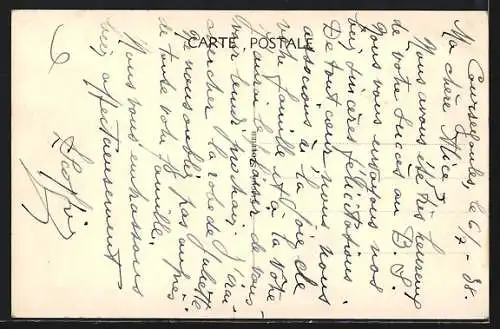 CARTE POSTALE
Coursegoules, le 6/7 - 38.
Ma chère Alice
Nous avons été très heureux
de votre succès au B. S.
nous vous envoyons nos
très sincères félicitations.
De tout cœur nous nous
associons à la joie de
votre famille et à la vôtre
J'aurai le plaisir de vous
voir lundi prochain. J'irai
chercher la robe de Juliette
ne nous oubliez pas auprès
de toute votre famille.
Nous vous embrassons
bien affectueusement